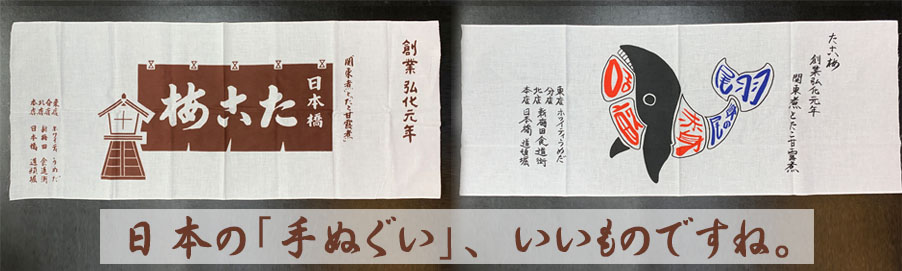 創業 弘化元年
関東煮とたこ甘露煮
日本橋
たこ梅
東店 ホワイティ うめだ
分店
北店 新梅田 食道街
本店 日本橋 道頓堀
たこ梅
創業弘化元年
関東煮とたこ甘露煮
東店 ホワイティうめだ
分店
北店 新梅田食道街
本店 日本橋 道頓堀
日本の「手ぬぐい」、いいものですね。